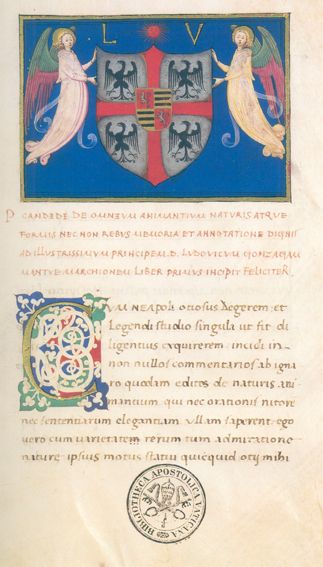 L V
P CANDIDE DE OMNIVM ANIMANTIVM NATVRIS ATQVE
FORMIS NEC NON REBVS MEMORIA ET ANNOTATIONE DIGNIS
AD ILLVSTRISSIMVM PRINCIPEM. D. LVDOVICVM GONZAGAM
MANTVE MARCHIONEM LIBER PRIMVS INCIPIT FELICITER.
CVM NEAPOLI otiosus degerem: et
legendi studio singula ut fit di
ligentius exquirerem incidi in
non nullos commentarios ab igna
ro quodam editos de naturis ani
mantium qui nec orationis nitore
nec sententiarum elegantiam ullam saperent. ego
uero cum uarietatem rerum tum admiratione
nature ipsius motus statui quicquid otij mihi
BIBLIOTHECA APOSTOLICA VATICANA